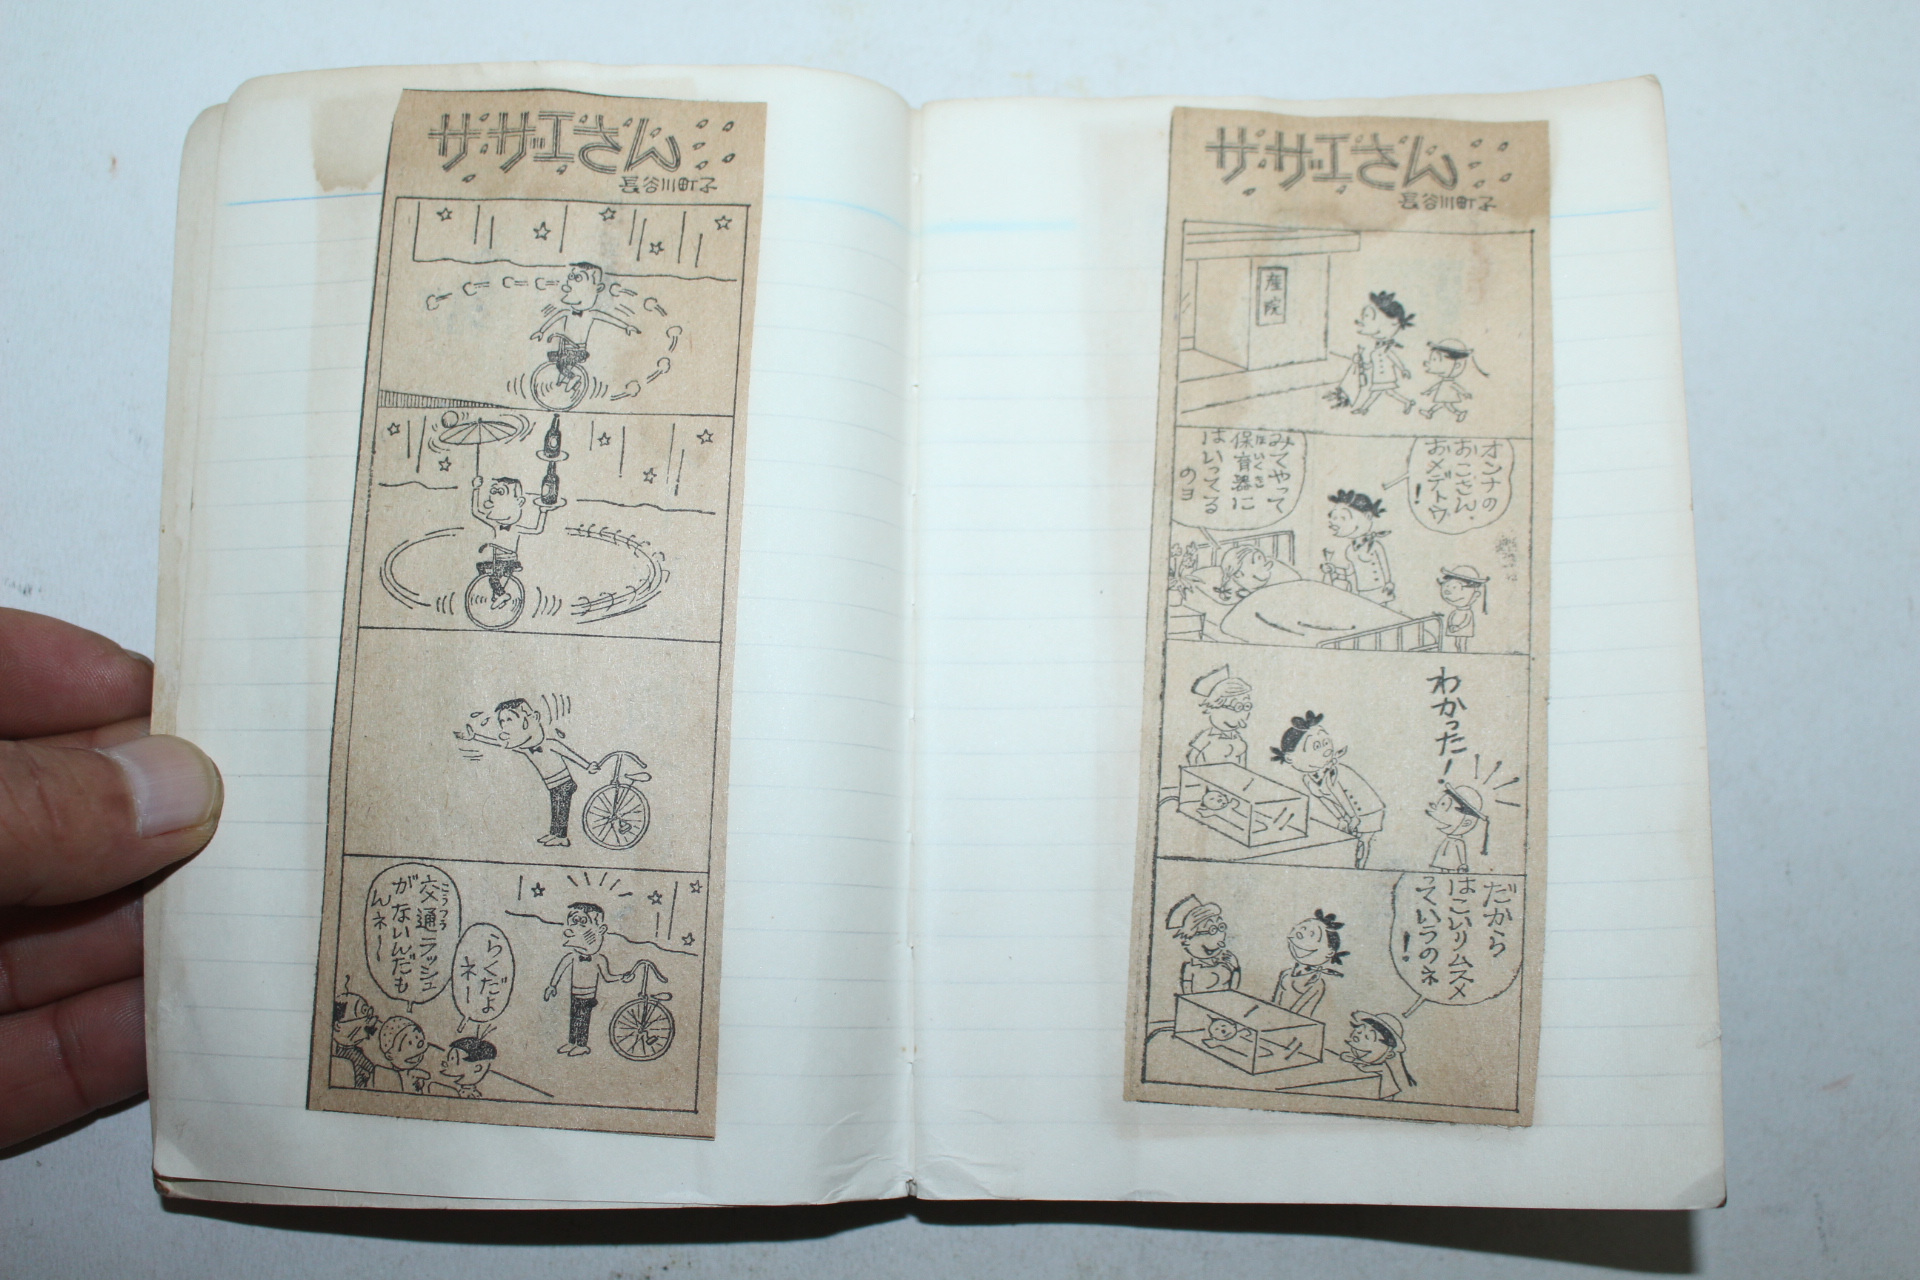 サザエさん
長谷川町子
らくだよ
ネー
交通ラッシュ
こうつう
がないんだも
んネー
サザエさん
長谷川町子
産院
オンナの
おこさん・
おメデトウ
!
みてやって
保育器に
ほいくき
はいってる
のヨ
わかった!
だから
はこいりムスメ
っていうのネ
!